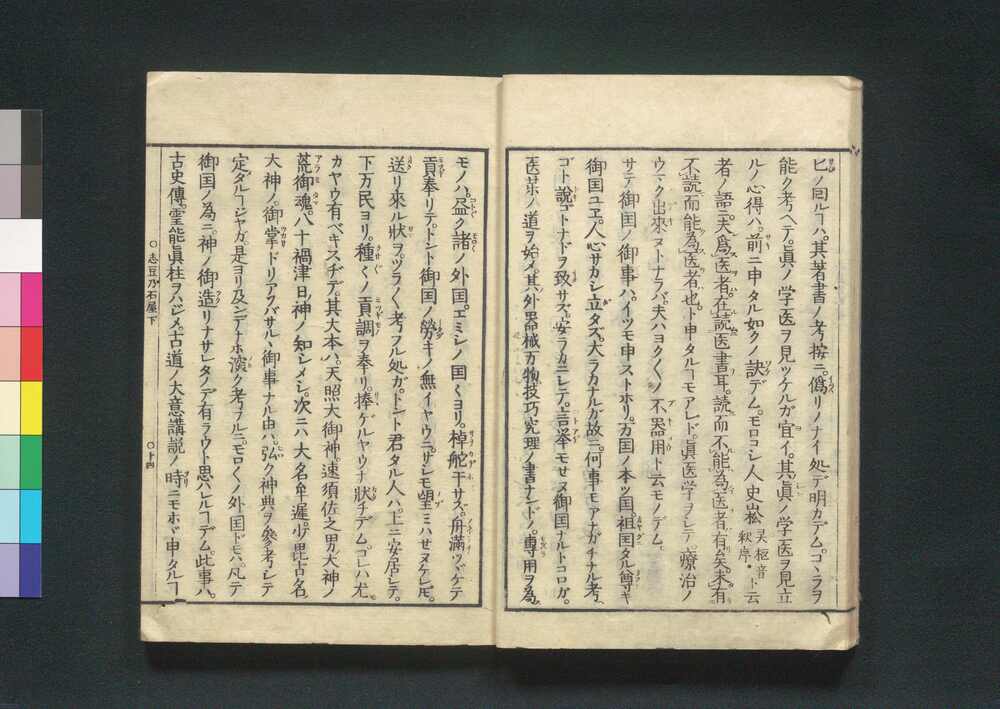 ヒノ回ルヿハ。其著書ノ考按ニ。僞リノナイ処デ明カデム。ゴヽラヲ
能ク考ヘテ。眞ノ学医ヲ見ツケルガ宜イ。其眞ノ学医ヲ見立
ルノ心得ハ。前ニ申タル如クノ訣デム。モロコシ人史崧灵枢音釈序ト云
者ノ語ニ。夫爲医者。在読医書耳。読而不能爲医者有矣。未有
不読而能爲医者也。ト申タルヿモアレド。眞医学ヲシテ療治ノ
ウマク出來ヌトナラバ。夫ハヨク〱ノ不器用ト云モノデム。
サテ御国ノ御事ハ。イツモ申ストホリ。万国ノ本ツ国。祖国タル尊キ
御国ユヱ。人心サカシ立タズ。大ラカナルガ故ニ。何事モアナガチナル考
ゴト説ゴトナドヲ致サズ。安ラカニシテ。言挙モセヌ御国ナルトコロガ。
医薬ノ道ヲ始メ。其外器械万物技巧究理ノ書ナンドノ。専用ヲ為
モノハ。盡ク諸ノ外国。エミシノ国〱ヨリ。棹舵干サズ。舟滿ツヾケテ
貢奉リテ。トント御国ノ勞キノ無イヤウニ。サレモ望ミハせヌケレ𪜈。
送リ來ル状ヲ。ツラ〱考フル処ガ。トント君タル人ハ。上ニ安居シテ。
下万民ヨリ。種〱ノ貢調ヲ奉リ。捧ゲルヤウナ状チデム。コレハ尤
カヤウ有ベキスヂデ。其大本ハ。天照大御神。速須佐之男大神ノ
荒御魂。八十禍津日神ノ知シメシ。次ニハ大名牟遅。少毘古名
大神ノ。御掌ドリアソバサル、御事ナル由ハ。弘ク神典ヲ參考シテ
定タルヿジヤガ。是ヨリ及ンデナホ演ク考フルニ。モロ〱ノ外国ドモハ。凡テ
御国ノ為ニ。神ノ御造リナサレタノデ有ラウト思ハレルヿデム。此事ハ。
古史傳。霊能眞柱ヲハジメ。古道ノ大意講説ノ時ニモホヾ申タルヿ
○志豆乃石屋下
○十四